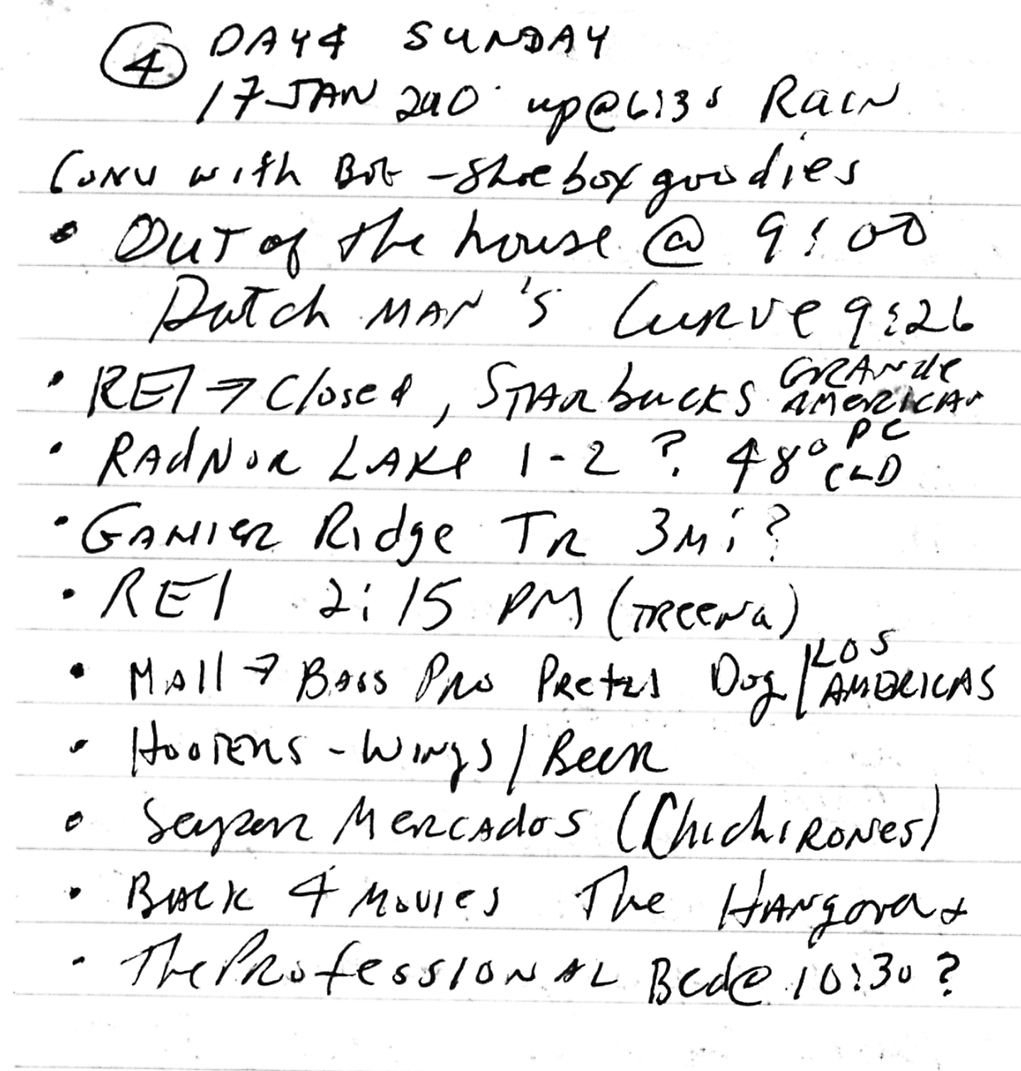 ④ DAY 4 SUNDAY
17 JAN 2010 up@6:30 RAIN
CONV with BOB - Shoebox goodies
• OUT of the house @ 9:00
Dutch MAN'S CURVE 9:26
• REI → Closed, STARbucks GRANDE AMERICAN
• RADNOR LAKE 1-2? 48° PC CLD
• GANIER Ridge TR 3Mi?
• REI 2:15 PM (TREENA)
• MAll → BASS PRO PRETZL Dog / LOS AMERICAS
• HOOTERS - WINGS / BEER
• Super MERCADOS (ChichiRONES)
• BACK 4 MOVIES The HANGOVER +
• The PROfessIONAL Bed@ 10:30?